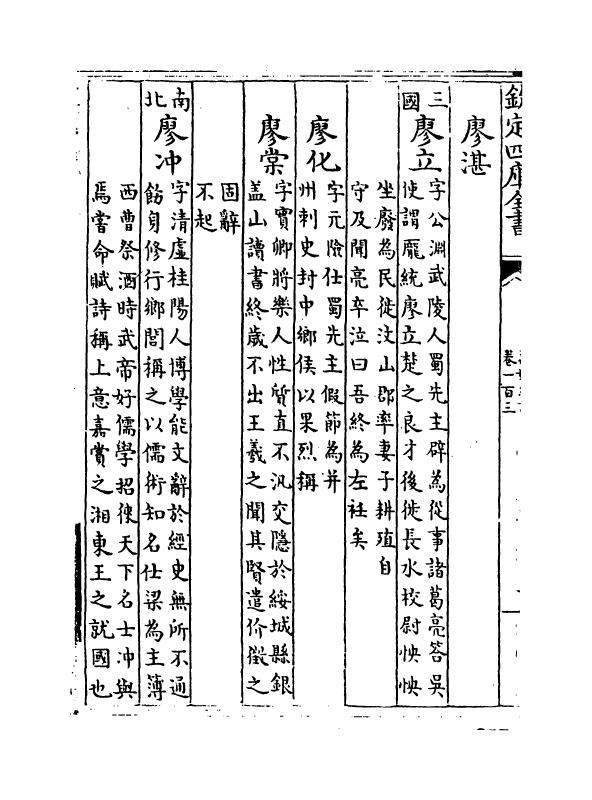 欽定四庫全書
卷一百三
廖湛
三國
廖立
字公淵武陵人蜀先主辟為從事諸葛亮答吳
使謂龐統廖立楚之良才後徙長水校尉怏怏
坐廢為民徙汶山郡率妻子耕殖自
守及聞亮卒泣曰吾終為左衽矣
廖化
字元儉仕蜀先主假節為并
州刺史封中鄉侯以果烈稱
廖棠
字實卿將樂人性質直不汎交隱於綏城縣銀
盖山讀書終歲不出王羲之聞其賢遣价徵之
固辭
不起
南北
廖冲
字清虛桂陽人博學能文辭於經史無所不通
飭身修行鄉閭稱之以儒術知名仕梁為主簿
西曹祭酒時武帝好儒學招徠天下名士冲與
焉嘗命賦詩稱上意嘉賞之湘東王之就國也